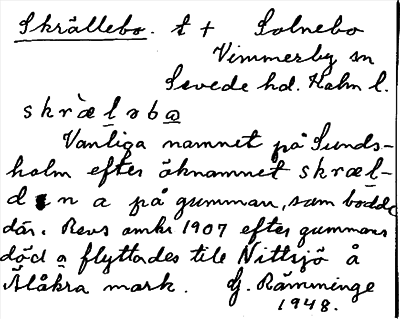 Skrällebo. t + Solnebo
Vimmerby sn
Sevede hd. Kalm l.
skræ̀ləbω
Vanliga namnet på Sunds-
holm efter öknamnet skræl-
dəna på gumman, som bodde
där. Revs omkr 1907 efter gummans
död o flyttades till Nittsjö å
Älåkra mark. G. Rämminge
1948.